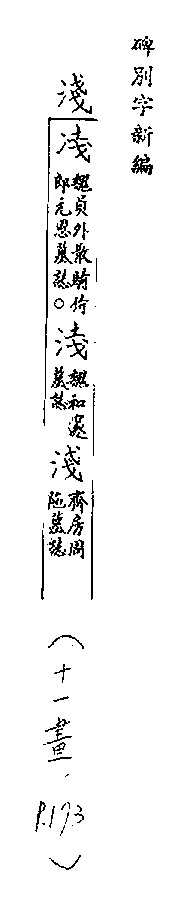 碑別字新編
淺
浅
魏貟外散騎侍
郎元恩墓誌○
浅
魏和邃
墓誌
淺
齊房周
陁墓誌
(十一畫. P.193)